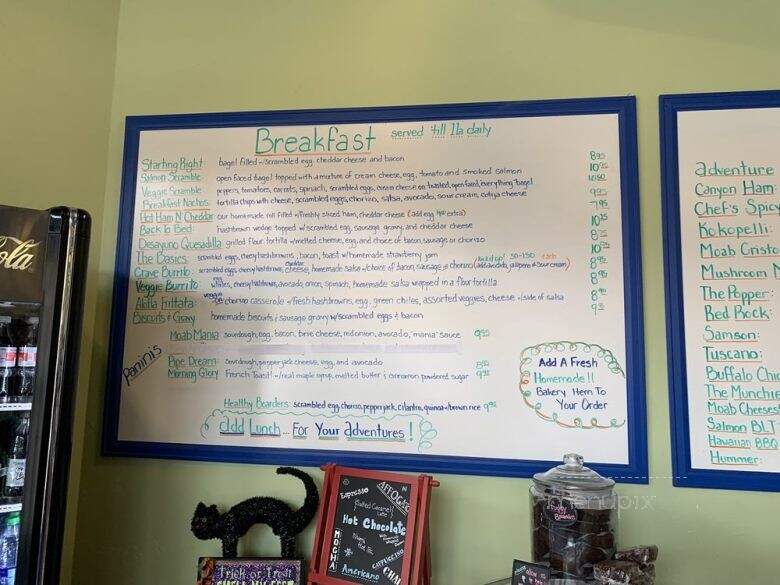 Breakfast served 'till 11a daily
Starting Right bagel filled w/scrambled egg, cheddar cheese and bacon 8.95
Salmon Scramble open faced bagel topped with a mixture of cream cheese, egg, tomato and smoked salmon 10.95
Veggie Scramble peppers, tomatoes, carrots, spinach, scrambled eggs, cream cheese on toasted, open faced, everything bagel 10.50
Breakfast Nachos tortilla chips with cheese, scrambled eggs, chorizo, salsa, avocado, sour cream, cotija cheese
Hot Ham N' Cheddar our homemade roll filled w/freshly sliced ham, cheddar cheese (add egg extra) 7.95
Back to Bed hashbrown wedge topped w/scrambled egg, sausage gravy, and cheddar cheese 10.25
Desayuno Quesadilla grilled flour tortilla w/melted cheese, egg, and choice of bacon, sausage or chorizo 8.75
The Basics scrambled eggs, cheesy hashbrowns, bacon, toast w/homemade strawberry jam 10.75
Crave Burrito scrambled eggs, cheesy hashbrowns, cheddar cheese, homemade salsa w/choice of bacon, sausage or chorizo (add avocado, jalapeno & sour cream) 8.95
Veggie Burrito egg whites, cheesy hashbrowns, avocado, onion, spinach, homemade salsa wrapped in a flour tortilla 8.95
Frittata chorizo casserole w/fresh hashbrowns, egg, green chiles, assorted veggies, cheese w/side of salsa
Biscuits & Gravy homemade biscuits & sausage gravy w/scrambled eggs & bacon
Paninis
Moab Mania sourdough, egg, bacon, brie cheese, red onion, avocado, "mania" sauce 9.95
Pipe Dream sourdough, pepper jack cheese, egg, and avocado
Morning Glory French Toast! w/real maple syrup, melted butter & cinnamon powdered sugar
Healthy Boarders: scrambled egg, chorizo, pepper jack, cilantro, quinoa w/brown rice
Add Lunch... For Your Adventures!
Add A Fresh
Homemade!!
Bakery Item To
Your Order
adventure
Canyon Ham
Chef's Spicy
Kokopelli:
Moab Cristo
Mushroom
The Popper:
Red Rock:
Samson:
Tuscano:
Buffalo Chic
The Munchie
Moab Cheeses
Salmon BLT
Hawaiian BBQ
Hummer:
Cola
Espresso
AFFOGATO
Salted Caramel
Latte
Hot Chocolate
MOCHA
Cappuccino
CHAI
Americano
Trick or Treat
menupix